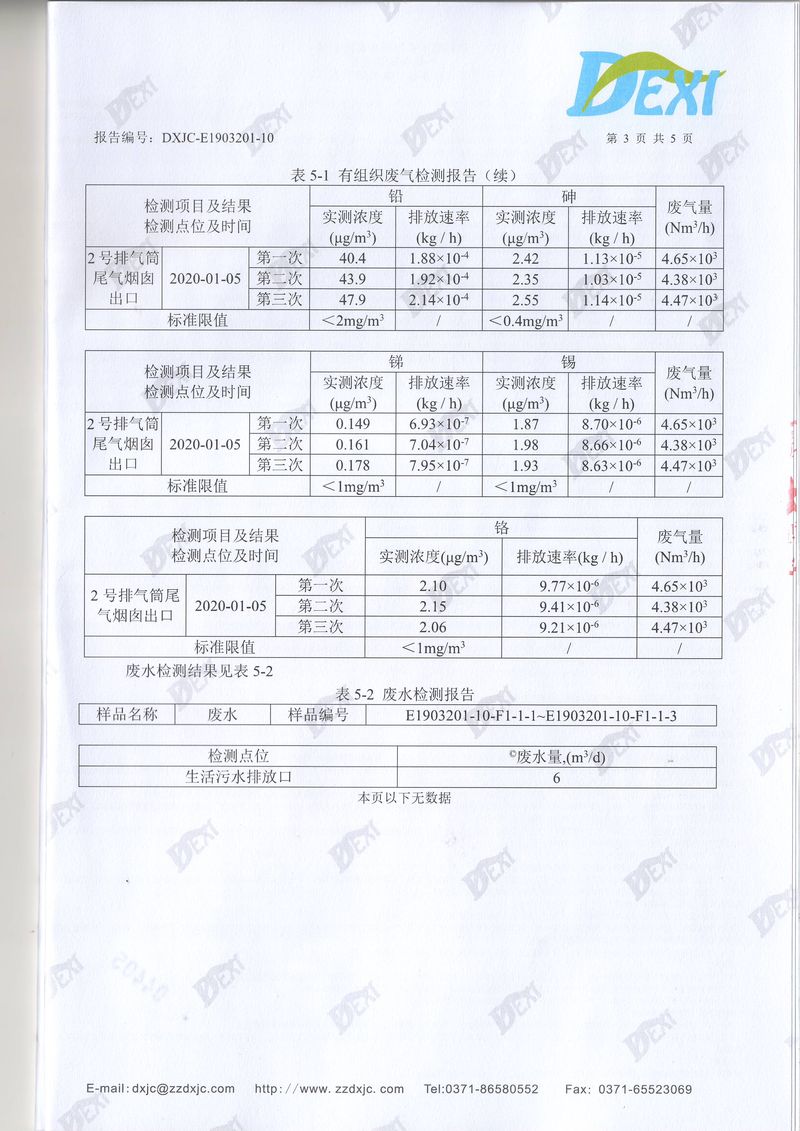 DEXI
报告编号：DXJC-E1903201-10
第 3 页 共 5 页
表 5-1 有组织废气检测报告（续）
检测项目及结果 检测点位及时间 铅 砷 废气量 (Nm³/h)
实测浓度 (μg/m³) 排放速率 (kg / h) 实测浓度 (μg/m³) 排放速率 (kg / h)
2 号排气筒尾气烟囱出口 2020-01-05 第一次 40.4 1.88×10⁻⁴ 2.42 1.13×10⁻⁵ 4.65×10³
第二次 43.9 1.92×10⁻⁴ 2.35 1.03×10⁻⁵ 4.38×10³
第三次 47.9 2.14×10⁻⁴ 2.55 1.14×10⁻⁵ 4.47×10³
标准限值 ＜2mg/m³ / ＜0.4mg/m³ / /
检测项目及结果 检测点位及时间 锑 锡 废气量 (Nm³/h)
实测浓度 (μg/m³) 排放速率 (kg / h) 实测浓度 (μg/m³) 排放速率 (kg / h)
2 号排气筒尾气烟囱出口 2020-01-05 第一次 0.149 6.93×10⁻⁷ 1.87 8.70×10⁻⁶ 4.65×10³
第二次 0.161 7.04×10⁻⁷ 1.98 8.66×10⁻⁶ 4.38×10³
第三次 0.178 7.95×10⁻⁷ 1.93 8.63×10⁻⁶ 4.47×10³
标准限值 ＜1mg/m³ / ＜1mg/m³ / /
检测项目及结果 检测点位及时间 铬 废气量 (Nm³/h)
实测浓度(μg/m³) 排放速率(kg / h)
2 号排气筒尾气烟囱出口 2020-01-05 第一次 2.10 9.77×10⁻⁶ 4.65×10³
第二次 2.15 9.41×10⁻⁶ 4.38×10³
第三次 2.06 9.21×10⁻⁶ 4.47×10³
标准限值 ＜1mg/m³ / /
废水检测结果见表 5-2
表 5-2 废水检测报告
样品名称 废水 样品编号 E1903201-10-F1-1-1~E1903201-10-F1-1-3
检测点位 ©废水量,(m³/d)
生活污水排放口 6
本页以下无数据
E-mail:dxjc@zzdxjc.com http://www.zzdxjc.com Tel:0371-86580552 Fax: 0371-65523069